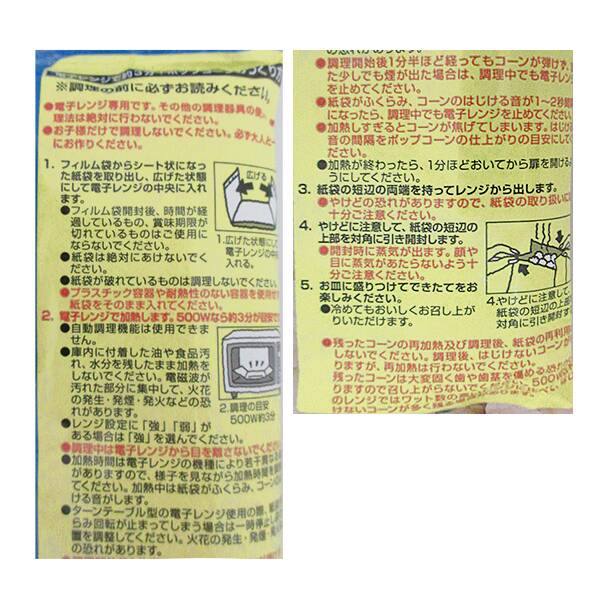 ※調理の前に必ずお読みください。
●電子レンジ専用です。その他の調理器具の使
理法は絶対に行わないでください。
●お子様だけで調理しないでください。必ず大人と
にお作りください。
1. フィルム袋からシート状になっ
た紙袋を取り出し、広げた状態
にして電子レンジの中央に入れ
ます。
●フィルム袋開封後、時間が経
過しているもの、賞味期限が
切れているものはご使用に
ならないでください。
●紙袋は絶対にあけないでください。
●紙袋が破れているものは調理しないでください。
●プラスチック容器や耐熱性のない容器を使用せず
紙袋をそのまま入れてください。
広げる
1.広げた状態にして
電子レンジの中央
入れる。
2. 電子レンジで加熱します。500Wなら約3分が目安で
●自動調理機能は使用できま
せん。
●庫内に付着した油や食品汚
れ、水分を残したまま加熱を
しないでください。電磁波が
汚れた部分に集中して、火花
の発生・発煙・発火などの恐
れがあります。
●レンジ設定に「強」「弱」が
ある場合は「強」を選んでください。
2.調理の目安
500W約3分
●調理中は電子レンジから目を離さないでください
●加熱時間は電子レンジの機種により若干異なる
がありますので、様子を見ながら加熱時間を
てください。加熱中は紙袋がふくらみ、コーンの
ける音がします。
●ターンテーブル型の電子レンジ使用の際、
らみ回転が止まってしまう場合は一時停止し
置を調整してください。火花の発生・発煙・発
の恐れがあります。
の恐れがあります。
●調理開始後1分半ほど経ってもコーンが弾けず、
た少しでも煙が出た場合は、調理中でも電子レン
を止めてください。
●紙袋がふくらみ、コーンのはじける音が1〜2秒間
になったら、調理中でも電子レンジを止めてください
●加熱しすぎるとコーンが焦げてしまいます。はじけ
音の間隔をポップコーンの仕上がりの目安にして
ください。
●加熱が終わったら、1分ほどおいてから扉を開ける
うにしてください。
3. 紙袋の短辺の両端を持ってレンジから出します。
●やけどの恐れがありますので、紙袋の取り扱いに
十分ご注意ください。
4. やけどに注意して、紙袋の短辺の
上部を対角に引き開封します。
●開封時に蒸気が出ます。顔や
目に蒸気があたらないよう十
分ご注意ください。
5. お皿に盛りつけてできたてをお
楽しみください。
●冷めてもおいしくお召し上が
りいただけます。
4.やけどに注意して、
紙袋の短辺の上
対角に引き開封す
●残ったコーンの再加熱及び調理後、紙袋の再利用
しないでください。調理後、はじけないコーンが
りますが、再加熱は行わないでください。
残ったコーンは大変固く歯や歯茎を傷める恐れが
りますので召し上がらないでください。500W
のレンジではワット数の
けないコーンが多く残